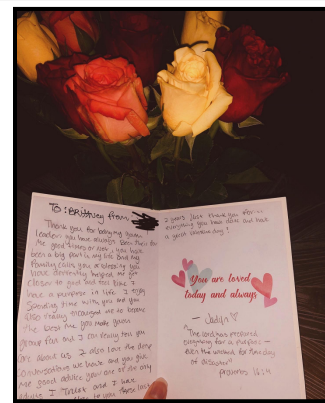 TO: Brittney from
Thank you for being my youth
leader you have always been there for
me good times or not, you have
been a big part in my life and my
family calls you a blessing you
have definitely helped me get
closer to god and feel like I
have a purpose in life. I enjoy
spending time with you and you
also really encouraged me to become
the best me. you make youth
group fun and I can really tell you
care about us. I also love the deep
conversations we have and you give
me good advice your one of the only
I trust and I have
to you these last
2 years just thank you
everything you have done and have
a great valentines day!
You are loved
today and always
— Jadyn ♡
"The Lord has created
everything for a purpose –
even the wicked for the day
of disaster"
proverbs 16:4